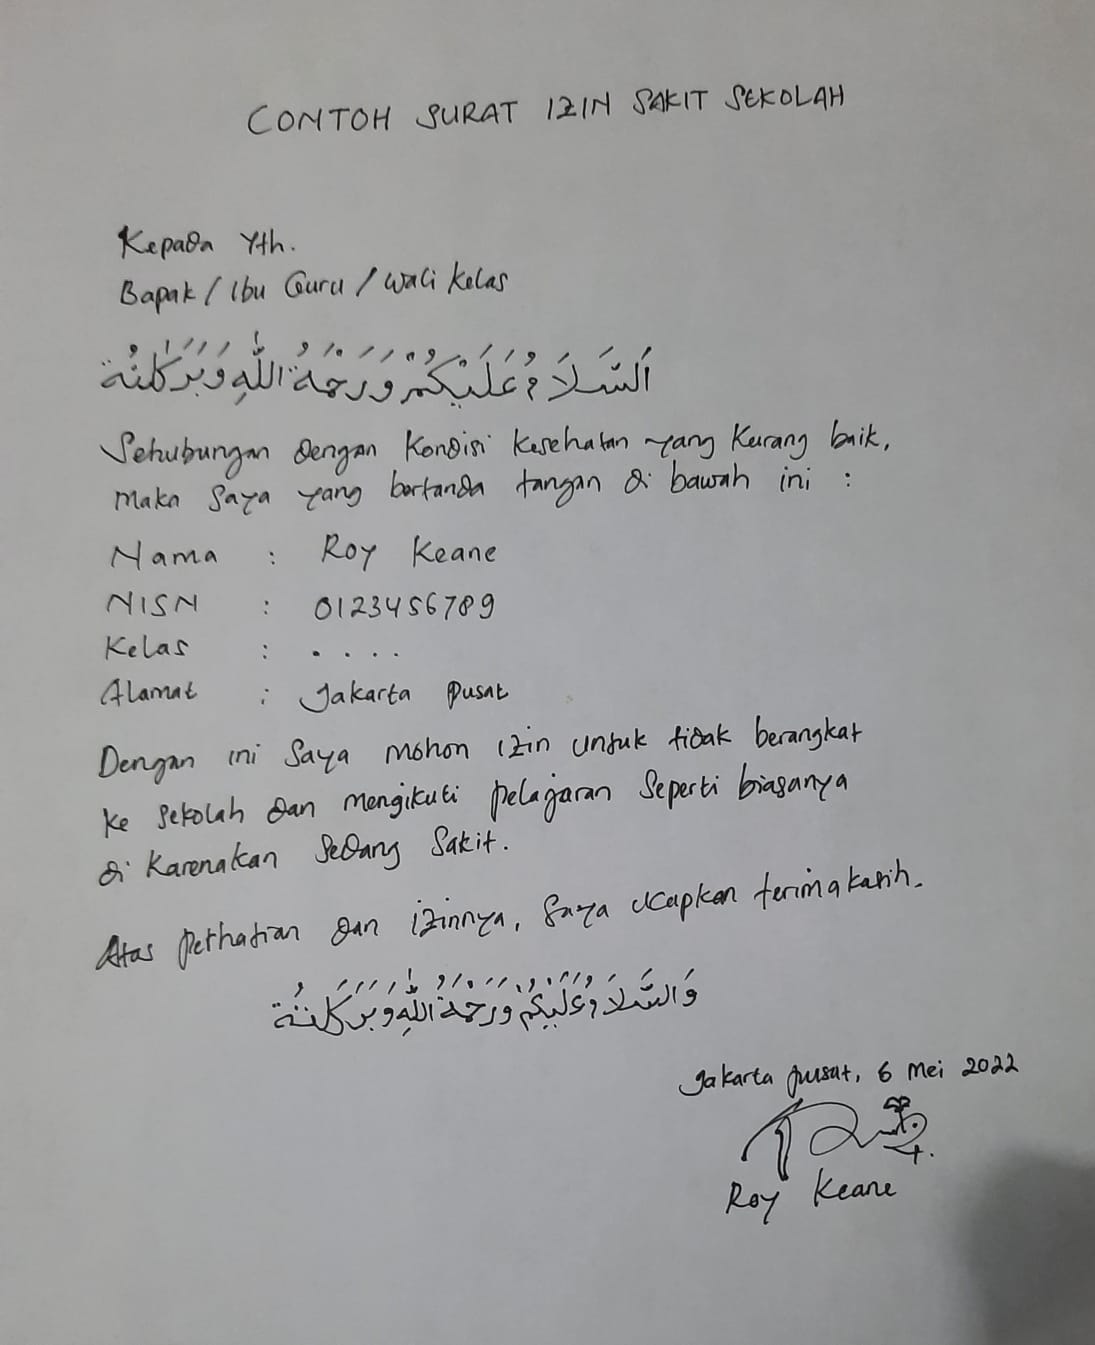 CONTOH SURAT IZIN SAKIT SEKOLAH
Kepada Yth.
Bapak / Ibu Guru / Wali Kelas
اَلسَّلَامُ عَلَيْكُمْ وَرَحْمَةُ اللّٰهِ وَبَرَكَاتُهُ
Sehubungan dengan Kondisi Kesehatan yang Kurang baik,
maka saya yang bertanda tangan di bawah ini :
Nama : Roy Keane
NISN : 0123456789
Kelas : . . . .
Alamat : Jakarta pusat
Dengan ini saya mohon izin untuk tidak berangkat
ke sekolah dan mengikuti pelajaran seperti biasanya
di karenakan sedang sakit.
Atas perhatian dan izinnya, saya ucapkan terimakasih.
وَالسَّلَامُ عَلَيْكُمْ وَرَحْمَةُ اللّٰهِ وَبَرَكَاتُهُ
Jakarta pusat, 6 Mei 2022
Roy Keane